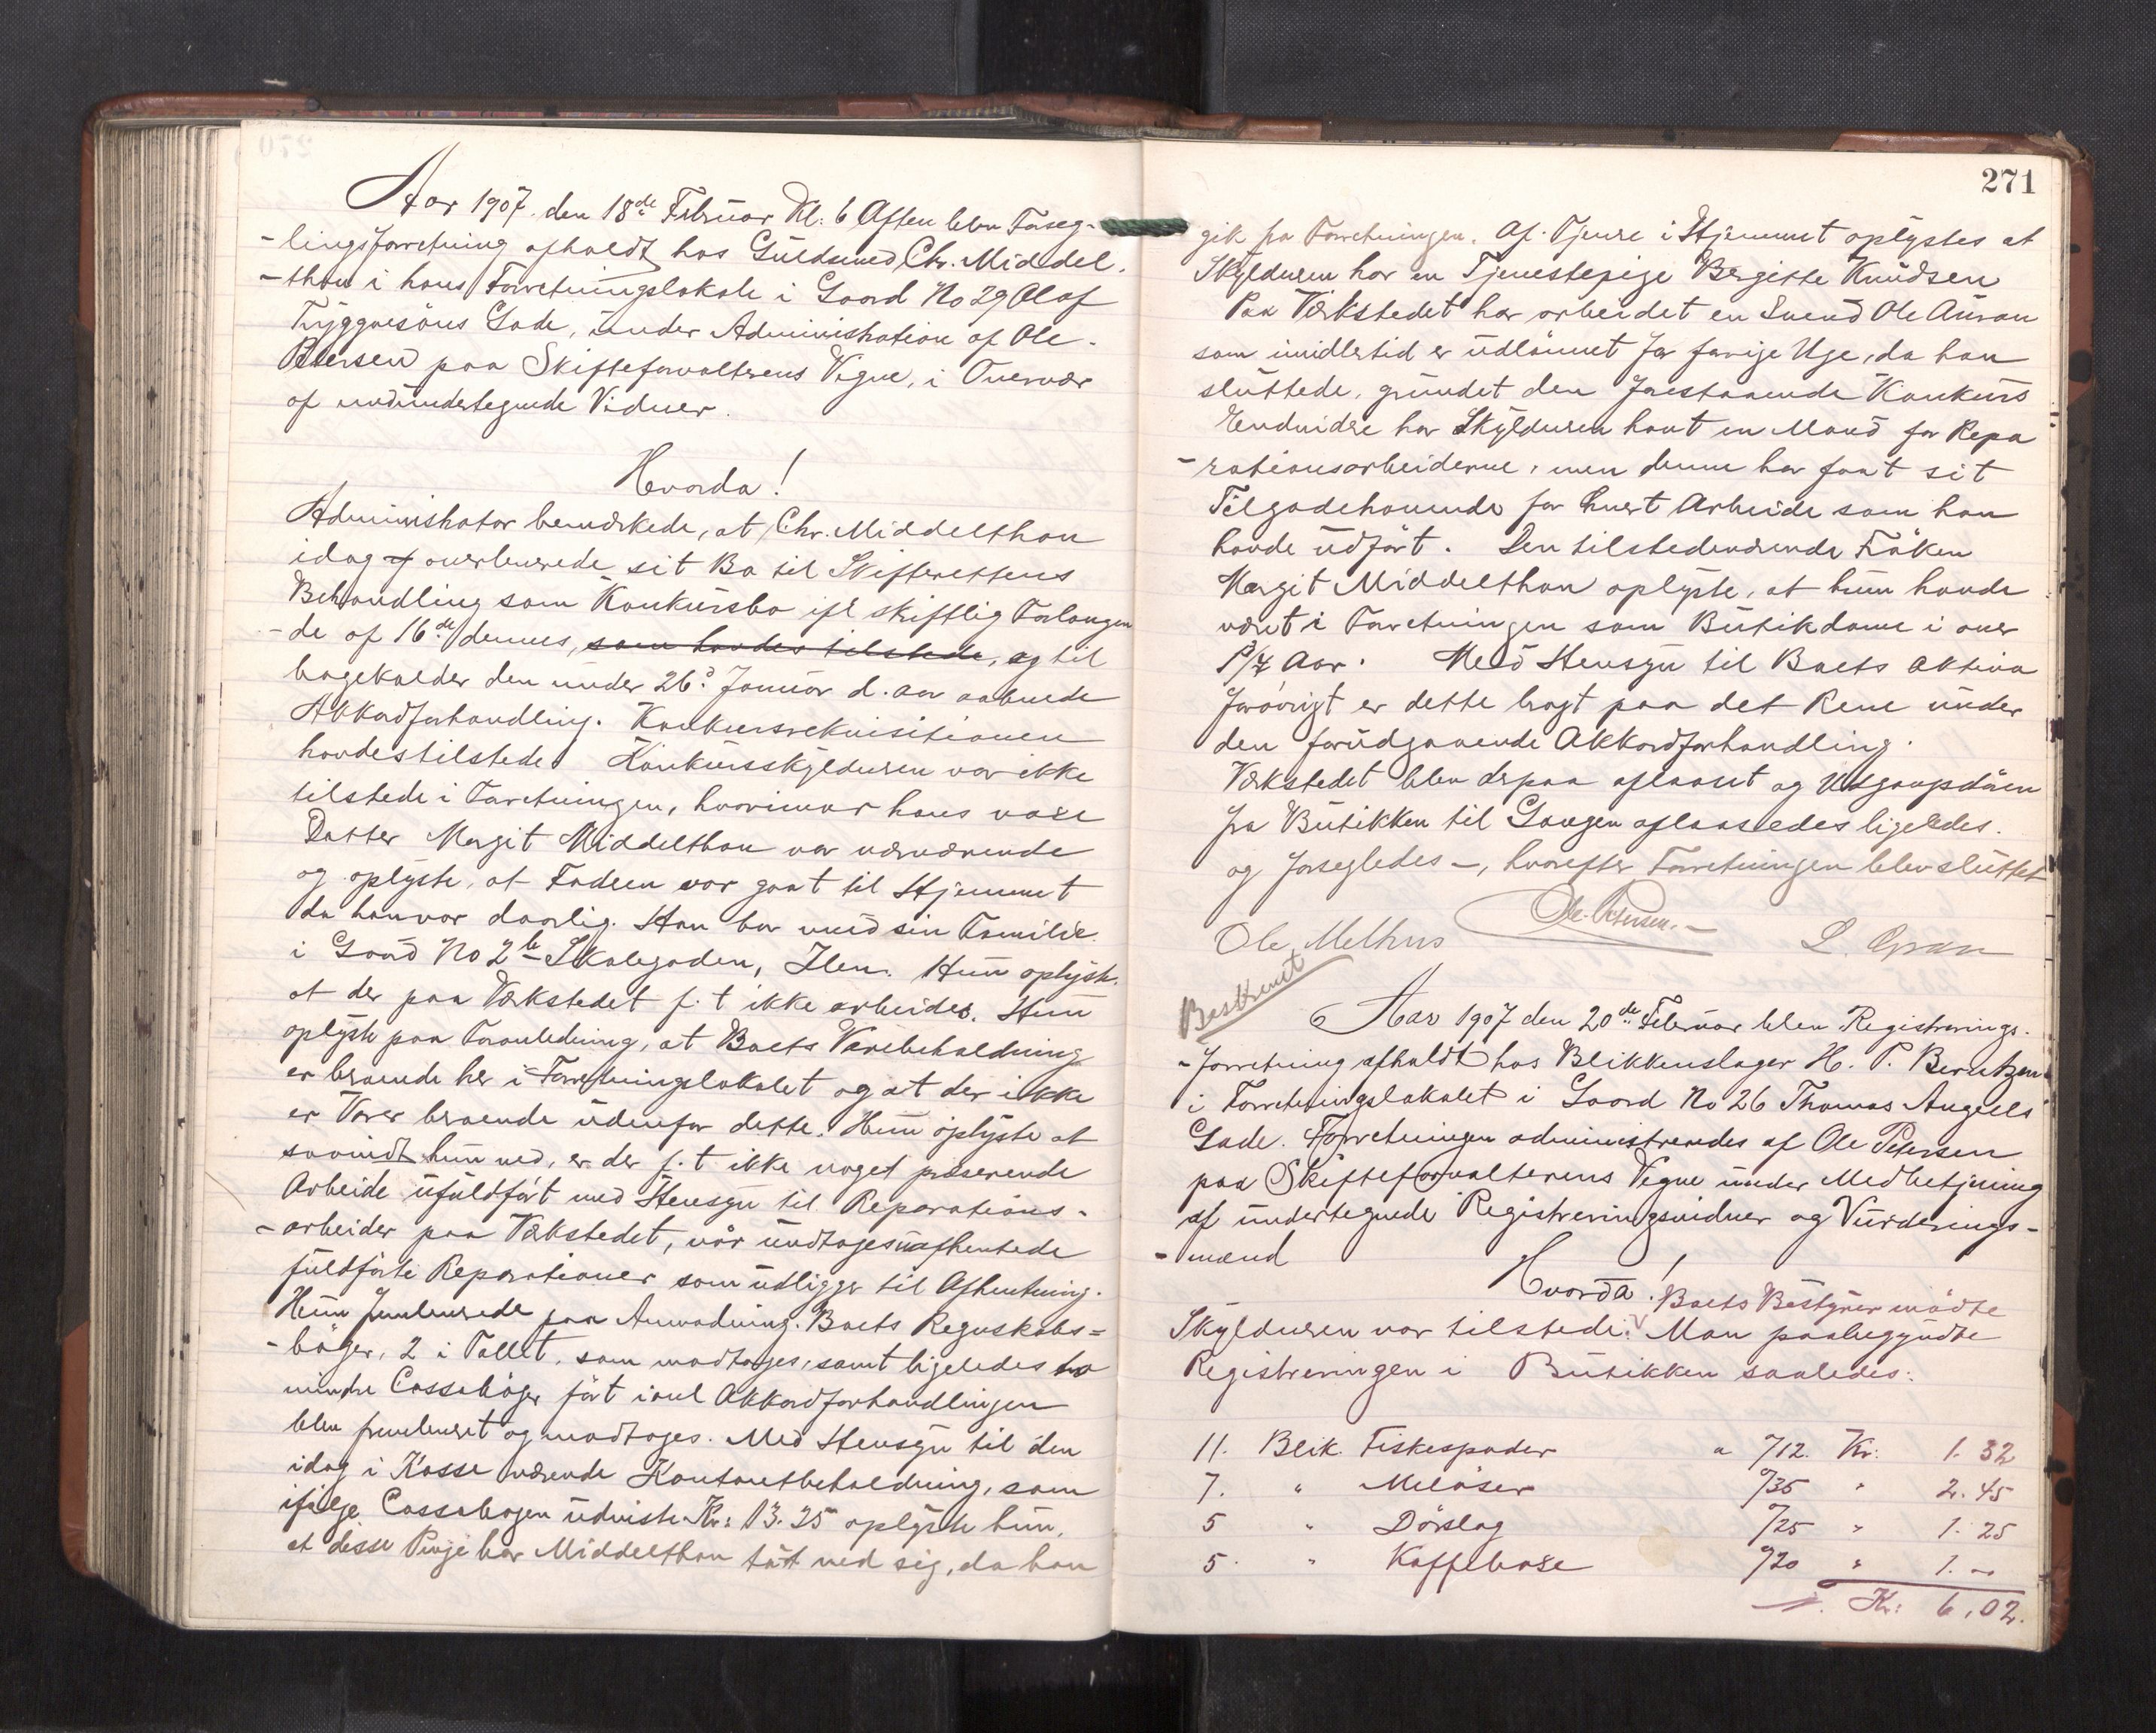 Aar 1907 den 18de Februar Kl: 6 Aften blev Forseg-
-lingsforretning afholdt hos Guldsmed Chr. Middel-
-thon i hans Forretningslokale i Gaard No 29 Olaf
Tryggvesöns Gade, under Administration af Ole
Petersen paa Skifteforvalterens Vegne, i Overvær
af medundertegnede Vidner.
Hvorda!
Administrator bemærkede, at Chr. Middelthon
idag overleverede sit Bo til Skifterettens
Behandling som Konkursbo ifl skriftlig Forlangen
-de af 16de dennes, som havdes tilstede, og til
bagekalder den under 26d Januar d. aar aabnede
Akkordforhandling. Konkursrekvisitionen
havdes tilstede Konkursskyldneren var ikke
tilstede i Forretningen, hvorimod hans voxne
Datter Margit Middelthon var nærværende
og oplyste, at Faderen var gaat til Hjemmet
da han var daarlig. Han bor med sin Familie
i Gaard No 2b Skolegaden, Ilen. Hun oplyste
at der paa Værkstedet f. t ikke arbeides. Hun
oplyste paa Foranledning, at Boets Varebeholdning
er beroende her i Forretningslokalet og at der ikke
er Varer beroende udenfor dette. Hun oplyste at
saavidt hun ved, er der f. t ikke noget presserende
Arbeide ufuldført med Hensyn til Reparations-
-arbeider paa Værkstedet, når undtages uafhentede
fuldførte Reparationer som udligger til Afhentning.
Hun fremleverede paa Anmodning Boets Regnskabs=
-bøger, 2 i Tallet, som modtoges, samt ligeledes to
mindre Cassabøger ført i Akkordforhandlingen
blev fremleveret og modtoges. Med Hensyn til den
idag i Kasse værende Kontantbeholdning, som
ifølge Cassabogen udviste Kr: 13.25 oplyste hun,
at disse Penge har Middelthon tat med sig, da han
271
gik fra Forretningen. Af Tjenere i Hjemmet oplystes at
Skyldneren har en Tjenestepige Bergitte Knudsen
Paa Værkstedet har arbeidet en Svend Ole Auran
som imidlertid er udlønnet for forrige Uge, da han
sluttede, grundet den forestaaende Konkurs
Endvidere har Skyldneren havt en Mand for Repa
-rationsarbeiderne, men denne har faat sit
Tilgodehavende for hvert Arbeide som han
havde udført. Den tilstedeværende Frøken
Margit Middelthon oplyste, at hun havde
været i Forretningen som Butikdame i over
Aar. Med Hensyn til Boets Aktiva
forøvrigt er dette bragt paa det Rene under
den forudgaaende Akkordforhandling.
Værkstedet blev derpaa aflaaset og Udgangsdøren
fra Butikken til Gangen aflaasedes ligeledes.
og forsegledes -, hvorefter Forretningen blev sluttet
Ole Petersen.-
Ole Melhus
L. Gran
Beskrevet
Aar 1907 den 20de Februar blev Registrerings-
-forretning afholdt hos Blikkenslager H. P. Berntzen
i Forretningslokalet i Gaard No 26 Thomas Angells
Gade. Forretningen administreredes af Ole Petersen
paa Skifteforvalterens Vegne under Medbetjening
af undertegnede Registreringsvidner og Vurderings-
-mænd
Hvorda!
Boets Bestyrer mødte
Skyldneren var tilstede. Man paabegyndte
Registreringen i Butikken saaledes:
11. Blik Fiskespader a "/12. Kr: 1. 32
7. " Meløser "/35 " 2. 45
5 " Dørslag "/25 " 1. 25
5. " Kaffebøxe "/20 " 1. "
Kr: 6,02.